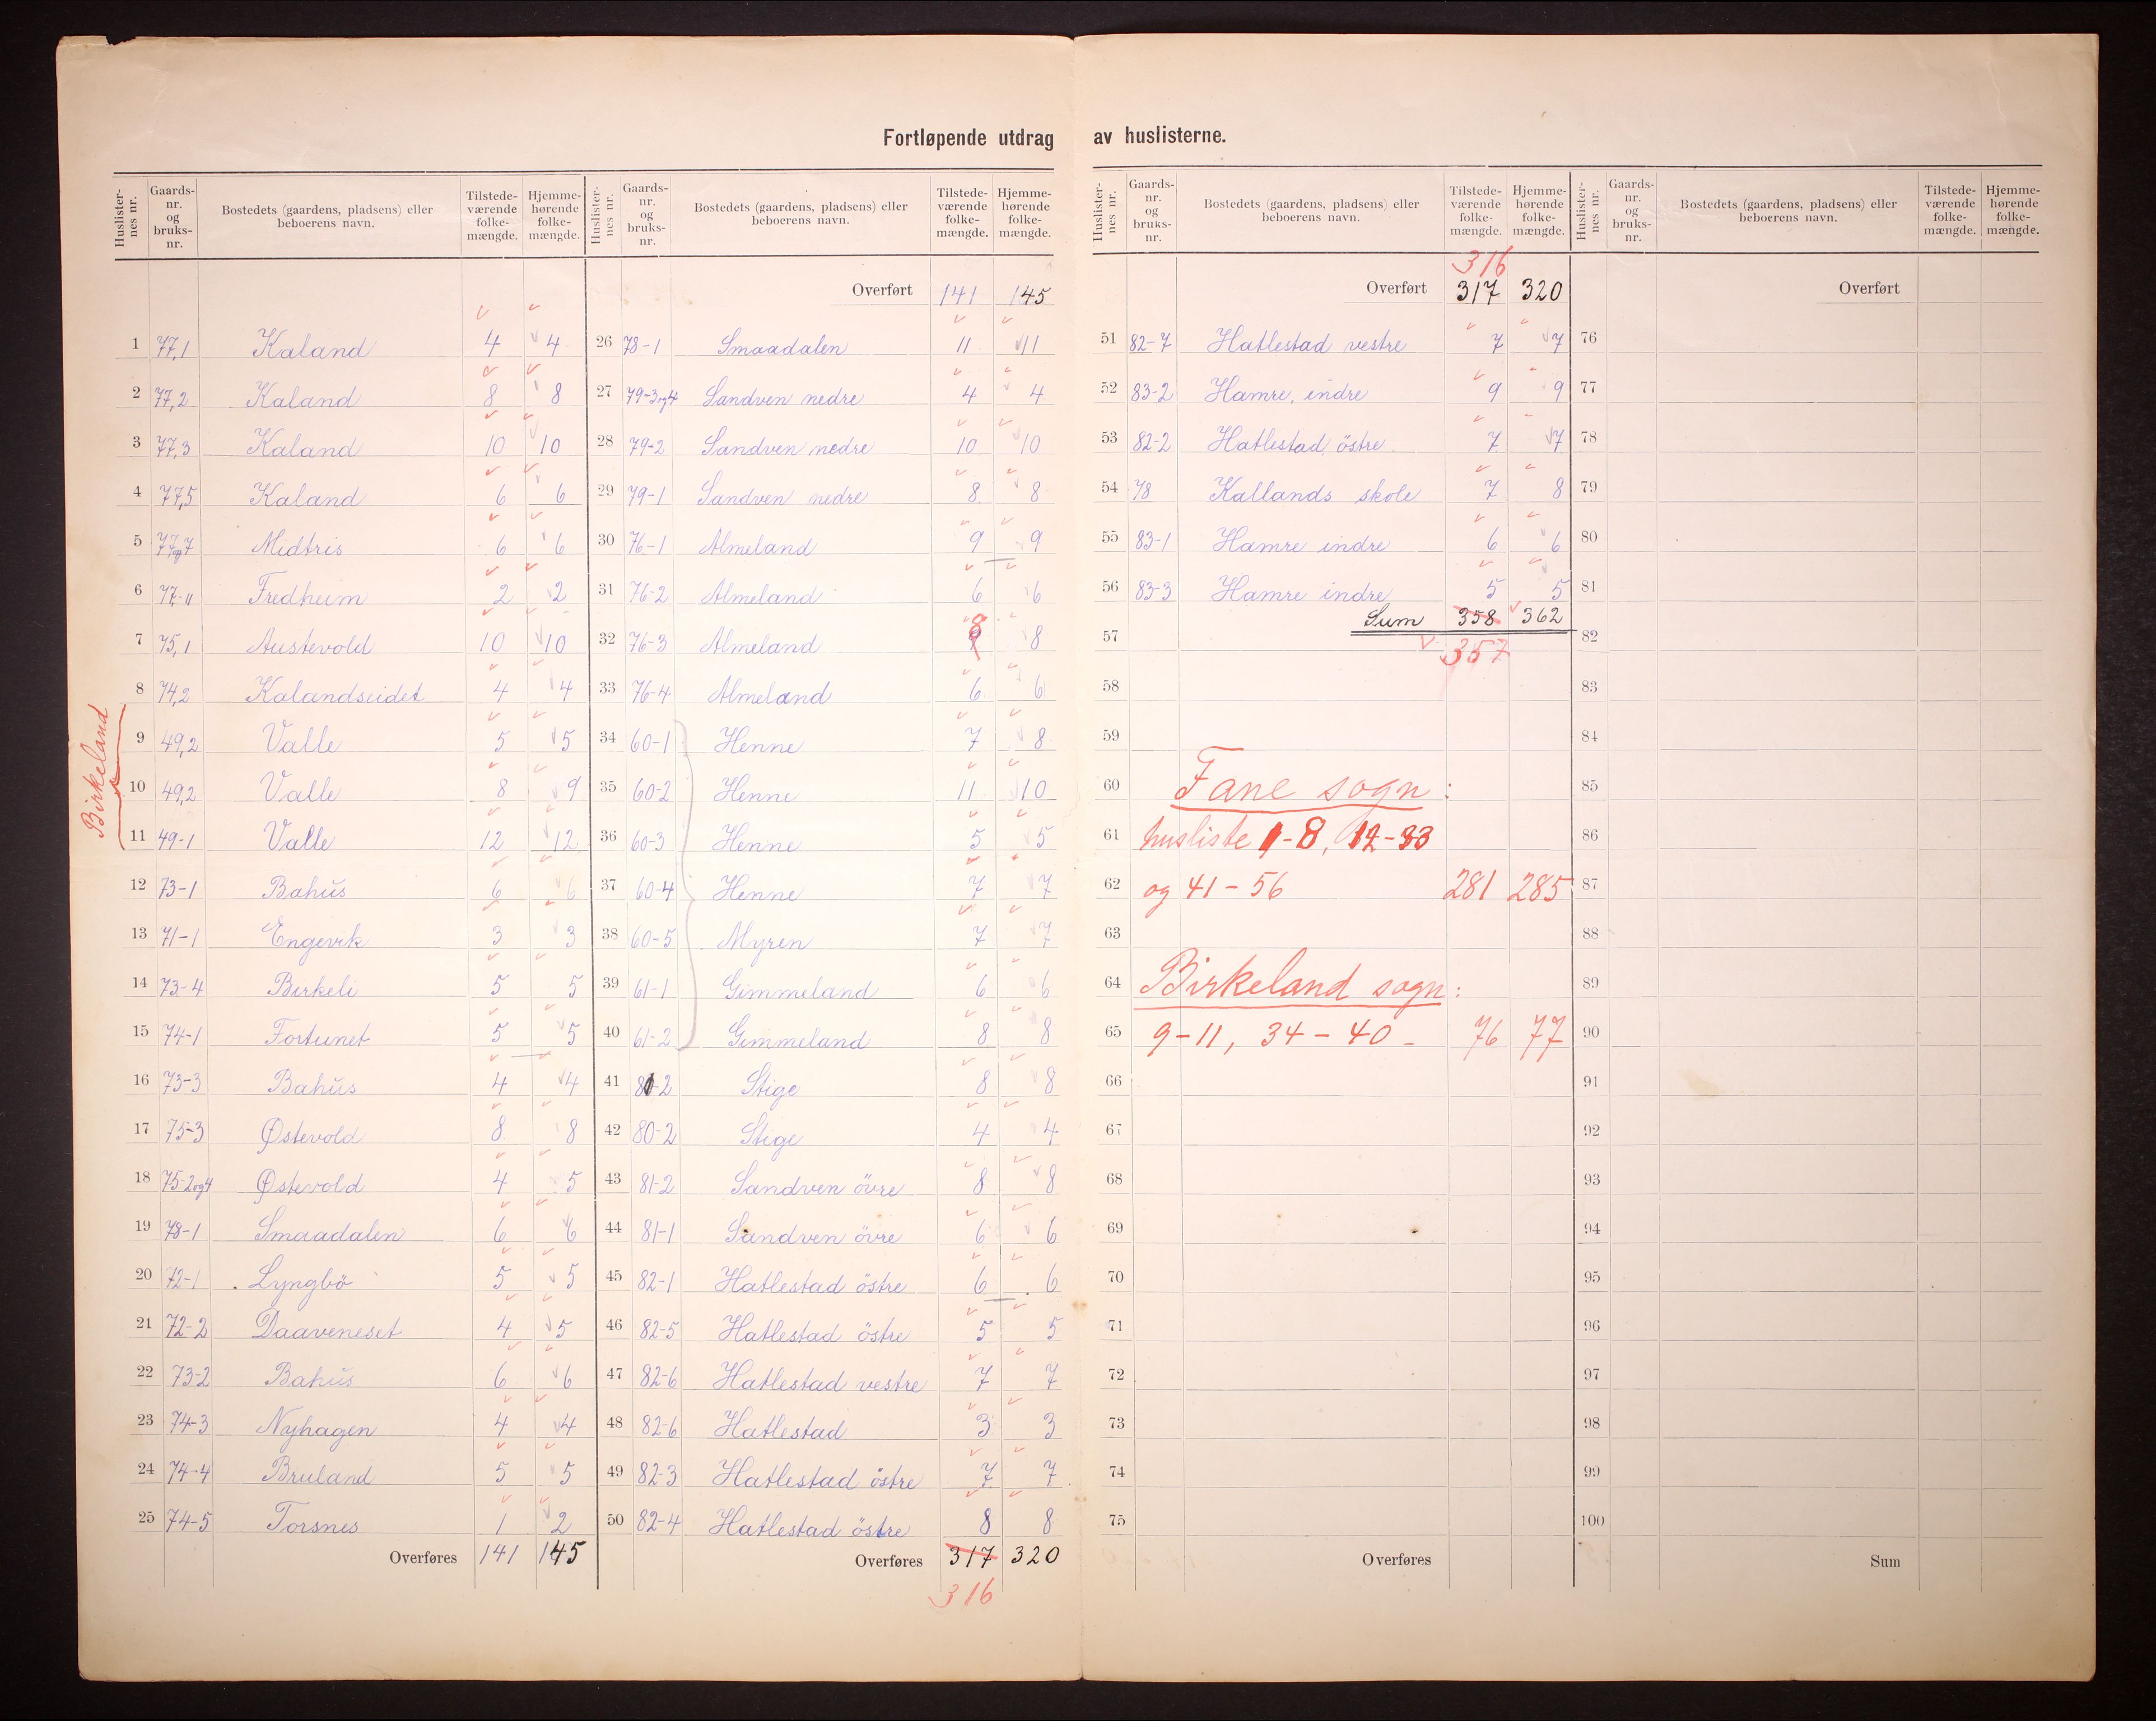 Fortløpende utdrag av huslisterne.
Huslister-nes nr. Gaards-nr. og bruks-nr. Bostedets (gaardens, pladsens) eller beboerens navn. Tilstede-værende folke-mængde. Hjemme-hørende folke-mængde.
1 77,1 Kaland 4 4
2 77,2 Kaland 8 8
3 77,3 Kaland 10 10
4 77,5 Kaland 6 6
5 77, og 7 Midtris 6 6
6 77,-11 Fredheim 2 2
7 75,1 Austevold 10 10
8 74,2 Kalandseidet 4 4
Birkeland
9 49,2 Valle 5 5
10 49,2 Valle 8 9
11 49-1 Valle 12 12
12 73-1 Bahūs 6 6
13 71-1 Engevik 3 3
14 73-4 Birkeli 5 5
15 74-1 Fortunet 5 5
16 73-3 Bahūs 4 4
17 75-3 Østevold 8 8
18 75-2og4 Østevold 4 5
19 78-1 Smaadalen 6 6
20 72-1 Lyngbö 5 5
21 72-2 Daaveneset 4 5
22 73-2 Bahūs 6 6
23 74-3 Nyhagen 4 4
24 74-4 Bruland 5 5
25 74-5 Torsnes 1 2
Overføres 141 145
Huslister-nes nr. Gaards-nr. og bruks-nr. Bostedets (gaardens, pladsens) eller beboerens navn. Tilstede-værende folke-mængde. Hjemme-hørende folke-mængde.
Overført 141 145
26 78-1 Smaadalen 11 11
27 79-3og4 Sandven nedre 4 4
28 79-2 Sandven nedre 10 10
29 79-1 Sandven nedre 8 8
30 76-1 Almeland 9 9
31 76-2 Almeland 6 6
32 76-3 Almeland 8 8
33 76-4 Almeland 6 6
34 60-1 Henne 7 8
35 60-2 Henne 11 10
36 60-3 Henne 5 5
37 60-4 Henne 7 7
38 60-5 Myren 7 7
39 61-1 Gimmeland 6 6
40 61-2 Gimmeland 8 8
41 81-2 Stige 8 8
42 80-2 Stige 4 4
43 81-2 Sandven övre 8 8
44 81-1 Sandven övre 6 6
45 82-1 Hatlestad östre 6 6
46 82-5 Hatlestad östre 5 5
47 82-6 Hatlestad vestre 7 7
48 82-6 Hatlestad 3 3
49 82-3 Hatlestad östre 7 7
50 82-4 Hatlestad östre 8 8
Overføres 317 320
316
Huslister-nes nr. Gaards-nr. og bruks-nr. Bostedets (gaardens, pladsens) eller beboerens navn. Tilstede-værende folke-mængde. Hjemme-hørende folke-mængde.
316
Overført 317 320
51 82-7 Hatlestad vestre 7 7
52 83-2 Hamre, indre 9 9
53 82-2 Hatlestad östre 7 7
54 78 Kallands skole 7 8
55 83-1 Hamre indre 6 6
56 83-3 Hamre indre 5 5
Sum 358 362
57 357
58
59
60 Fane sogn:
61 husliste 1-8, 12-33
62 og 41-56 281 285
63
64 Birkeland sogn:
65 9-11, 34-40- 76 77
66
67
68
69
70
71
72
73
74
75
Overføres
Huslister-nes nr. Gaards-nr. og bruks-nr. Bostedets (gaardens, pladsens) eller beboerens navn. Tilstede-værende folke-mængde. Hjemme-hørende folke-mængde.
Overført
76
77
78
79
80
81
82
83
84
85
86
87
88
89
90
91
92
93
94
95
96
97
98
99
100
Sum